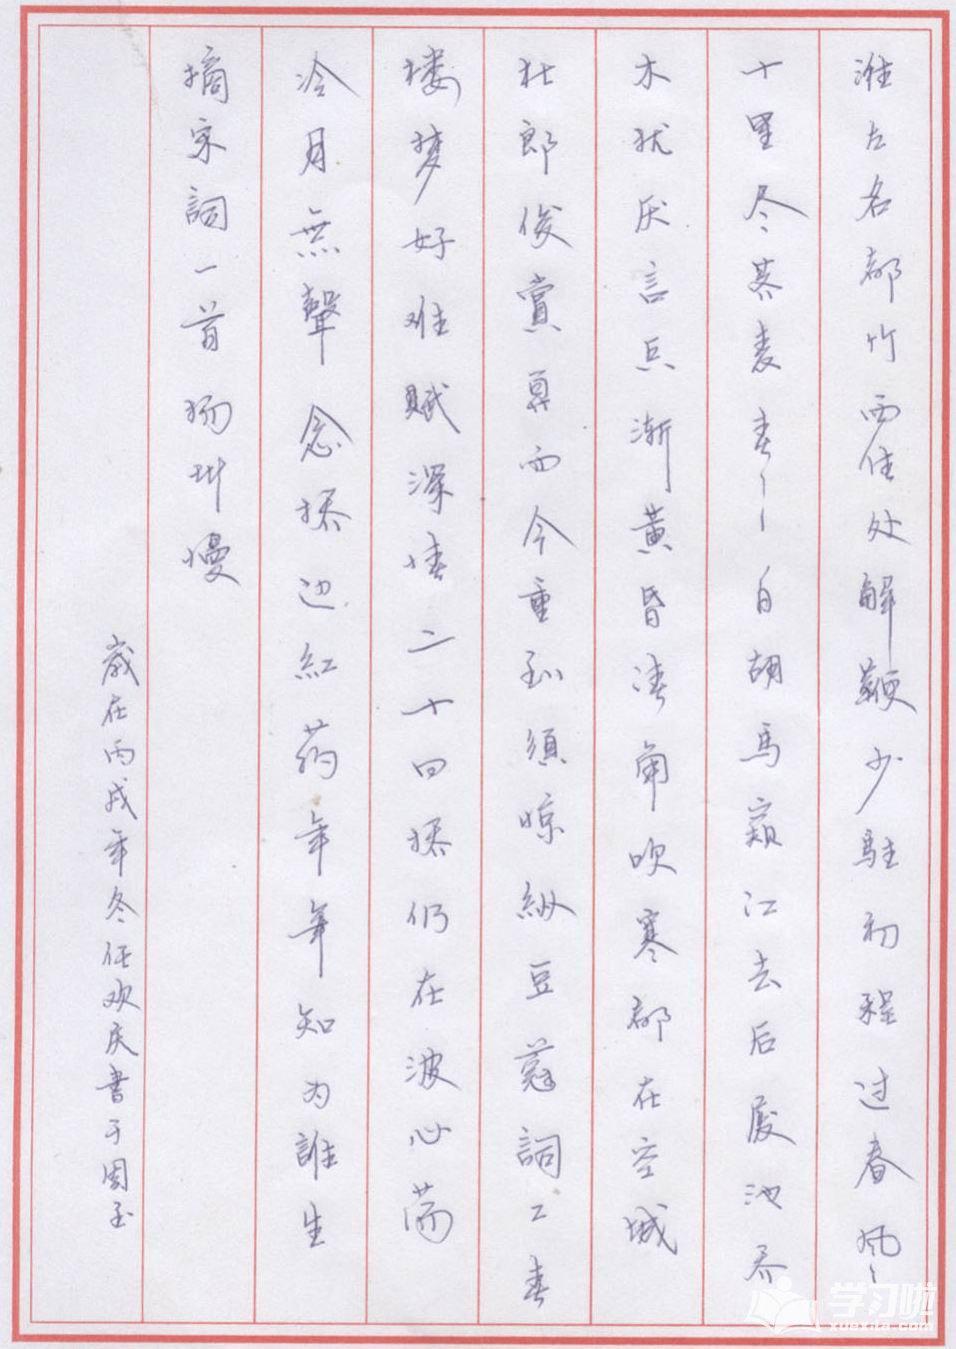 淮左名都竹西佳处解鞍少駐初程过春风丶
十里尽荠麦青丶丶自胡馬窺江去后废池乔
木犹厌言兵渐黄昏清角吹寒都在空城
杜郎俊賞算而今重到須惊纵豆蔻詞工青
楼梦好难赋深情二十四桥仍在波心荡
冷月無聲念桥边紅药年年知为誰生
摘宋詞一首扬州慢
歲在丙戌年冬任欢庆書于固玉
学习啦
xuexila.com